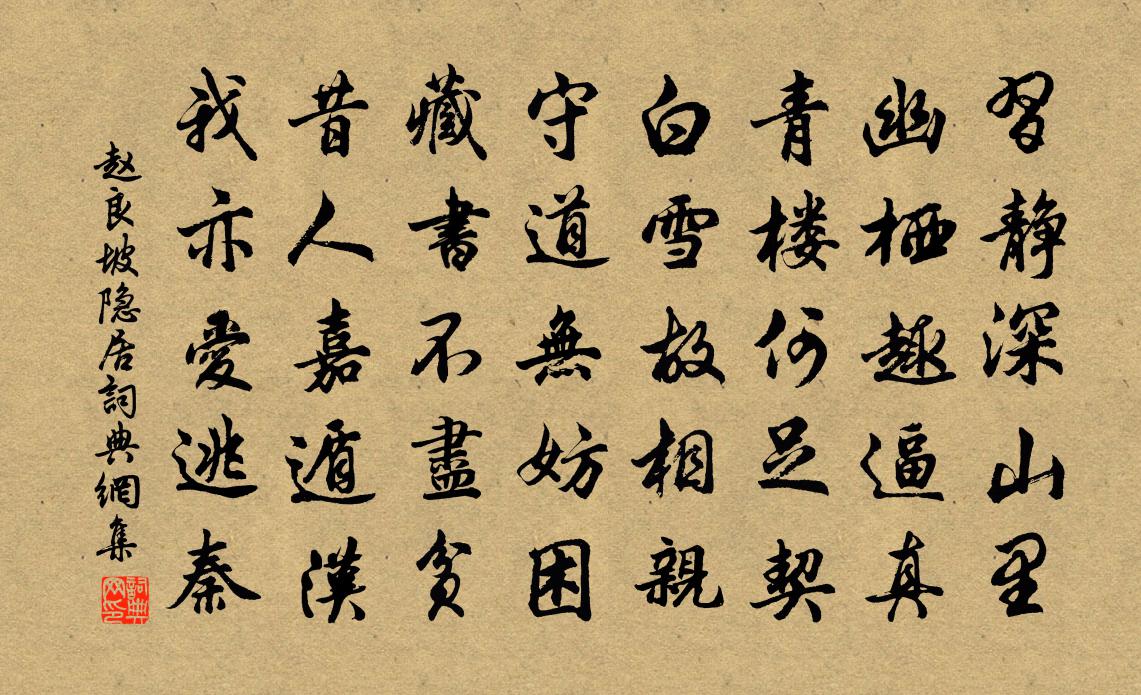 習静深山里
幽栖趣逼真
青楼何足契
白雪故相親
守道無妨困
藏書不盡貧
昔人嘉遁漢
我亦愛逃秦
赵良坡隐居詞典網集
詞典网印